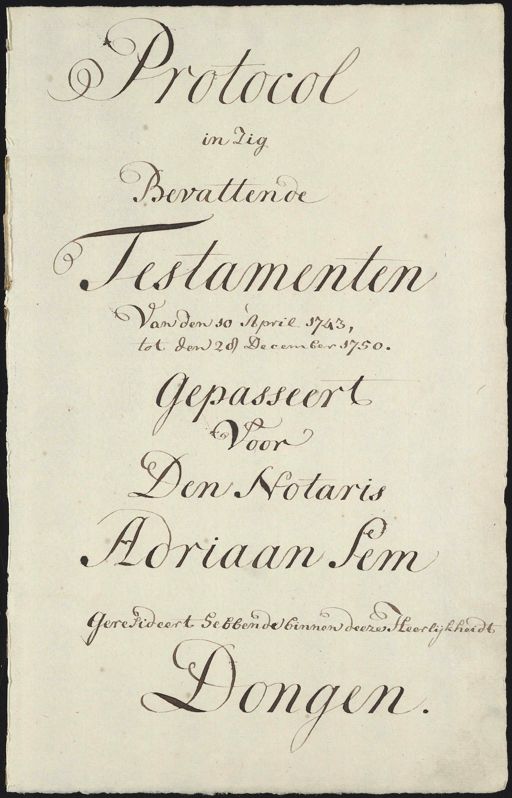 Protocol
in Zig
Bevattende
Testamenten
Van den 10 April 1743,
tot den 28 December 1750.
Gepasseert
Voor
Den Notaris
Adriaan Sem
Geresideert hebbende binnen deeze Heerlijkheidt
Dongen.